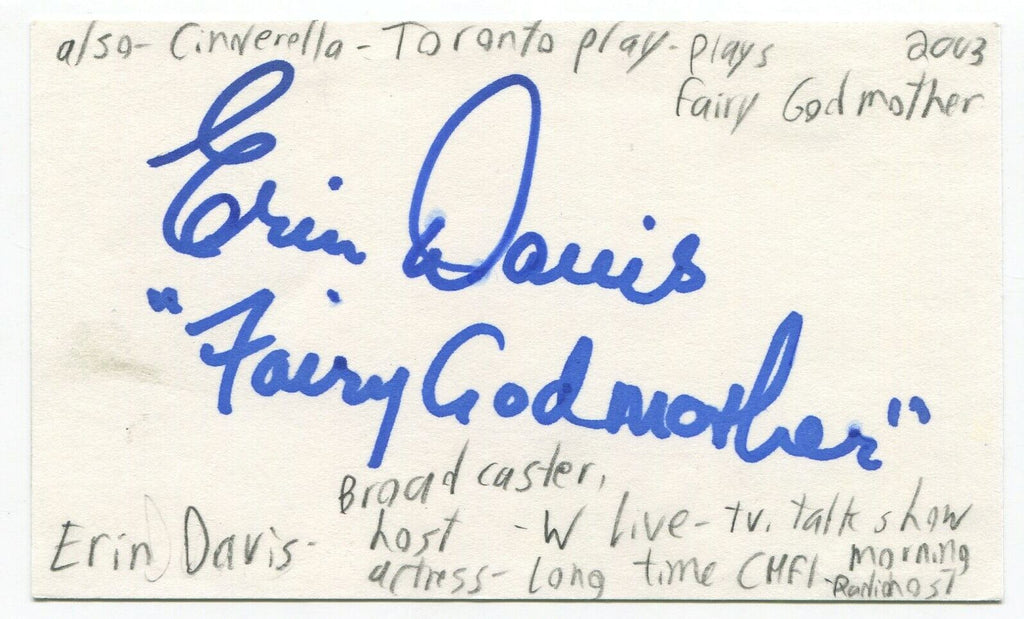 also- Cinderella - Toronto play - plays 2003
Fairy Godmother
Erin Davis
"Fairy Godmother"
Broadcaster,
Erin Davis - host - W live - tv. talk show
actress - long time CHFI - morning
Radio host